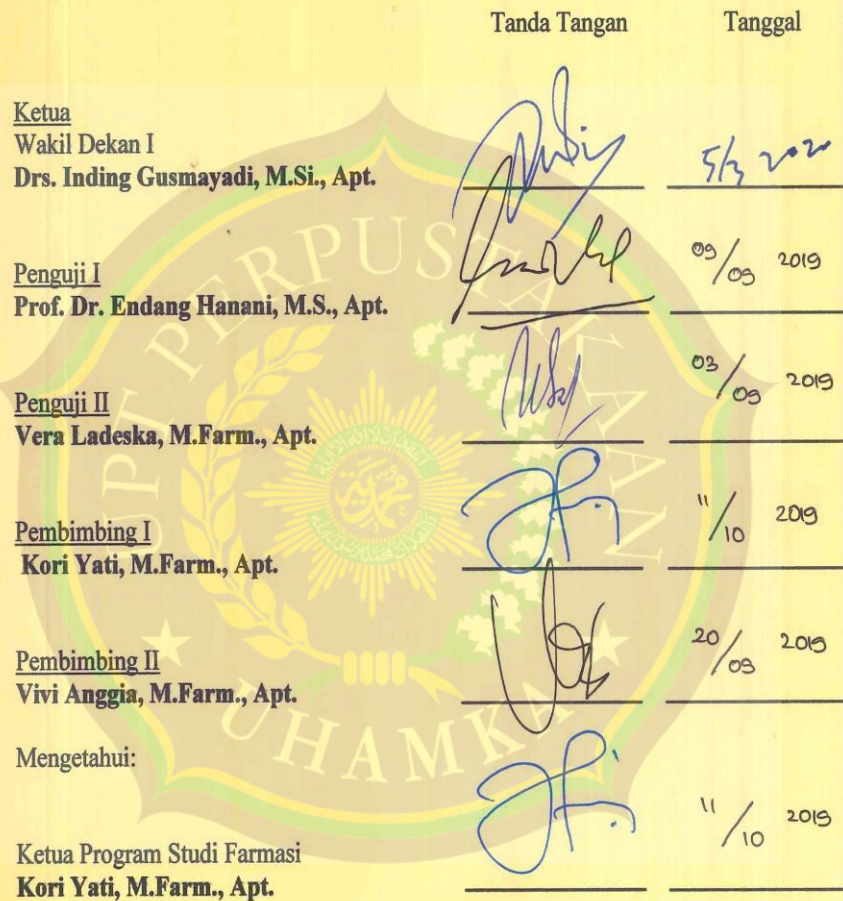 Tanda Tangan Tanggal
Ketua
Wakil Dekan I
Drs. Inding Gusmayadi, M.Si., Apt.
5/3 2020
Penguji I
Prof. Dr. Endang Hanani, M.S., Apt.
09/09 2019
Penguji II
Vera Ladeska, M.Farm., Apt.
03/09 2019
Pembimbing I
Kori Yati, M.Farm., Apt.
11/10 2019
Pembimbing II
Vivi Anggia, M.Farm., Apt.
20/09 2019
Mengetahui:
Ketua Program Studi Farmasi
Kori Yati, M.Farm., Apt.
11/10 2019
UPT PERPUSTAKAAN
UHAMKA